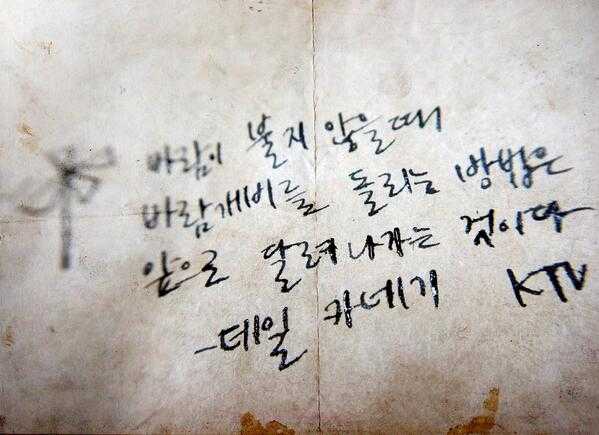 바람이 불지 않을때
바람개비를 돌리는 방법은
앞으로 달려나가는 것이다
-데일 카네기 KTV